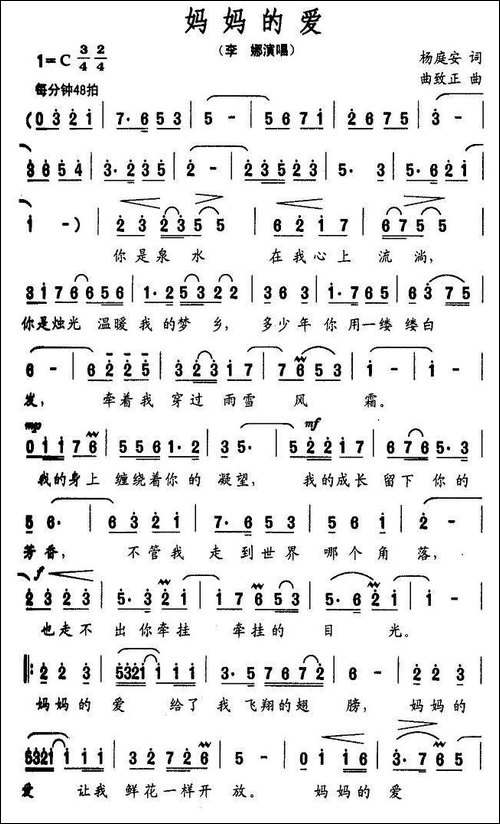 妈妈的爱
(李 娜演唱)
1=C 3/4 2/4
杨庭安 词
每分钟48拍
曲致正 曲
(0 3 2 1 | 7· 6 5 3 | 5 - | 2 4 3 2 | 7· 2 7 5 | 3 - |
3 6 5 4 | 3· 2 3 5 | 2 - | 2 3 5 2 3 | 5· 3 | 5· 6 2 1 |
1 - ) | 2 3 2 3 5 5 | 6 2 1 7 | 6 7 5 5 |
你是泉 水 在我心上 流 淌,
3 1 7 6 6 5 6 | 1· 2 5 3 2 2 | 3 6 3 | 1· 7 6 5 | 6 3 7 5 |
你是烛光 温暖我的梦 乡, 多少年你用一缕 缕白
6 - | 6 2 2 5 | 3 2 3 1 7 | 7 6 5 3 | 1 - | 1 - |
发, 牵着我 穿过 雨雪 风 霜。
mp mf
0 1 1 7 6 | 5 5 6 1· 2 | 3 5· | 5 2 2 1 7 | 6 7 6 | 5· 3 |
我的身上 缠绕着你的 凝望, 我的成长 留下 你的
5 6· | 6 3 2 1 | 7· 6 5 3 | 5 5 6 1 | 2 - |
芳香, 不管我 走到世界 哪个角 落,
f
2 3 2 3 | 5· 3 2 1 | 1 7 6 5 3 | 5· 6 2 1 | 1 - |
也走不 出你牵挂 牵挂的 目 光。
2 2 3 | 5321 1 1 1 | 3· 5 7 6 7 2 | 6 - | 2 2 3 |
妈妈的 爱 给了 我飞翔的翅 膀, 妈妈的
5321 1 1 1 | 3 2 7 2 6 | 5 - | 2 2 3 | 7 6 5 |
爱 让我 鲜花一样开 放。 妈妈的 爱